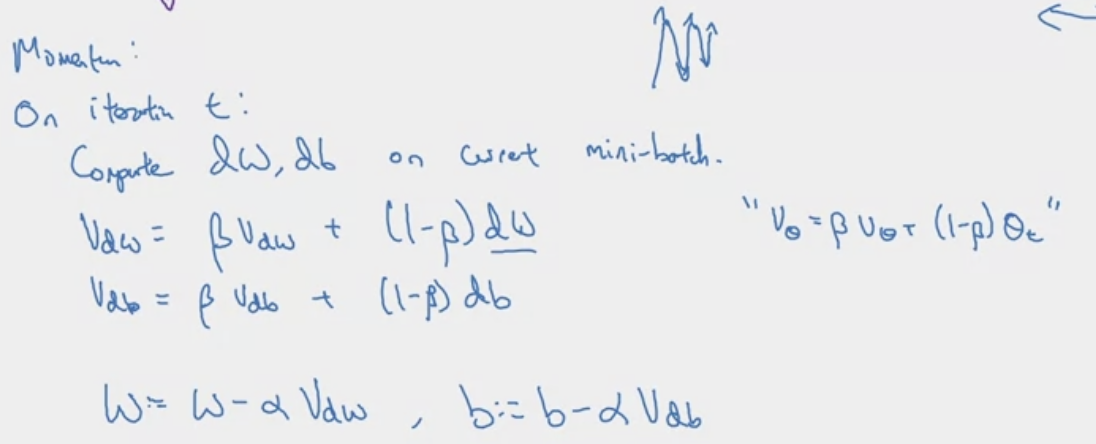 Momentum:
On iteration t:
Compute dW, db on current mini-batch.
Vdw = βVdw + (1-β)dW
"Vθ = βVθ + (1-β)θt"
Vdb = βVdb + (1-β)db
W := W - αVdw , b := b - αVdb